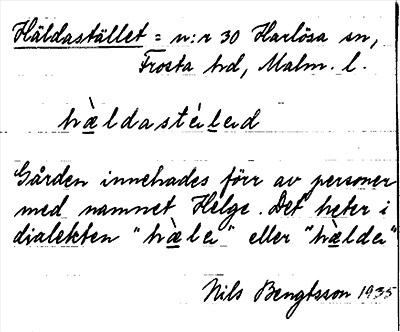 Häldastället = n:r 30 Harlösa sn,
Frosta hd, Malm. l.
hàldastélęd
Gården innehades förr av personer
med namnet Helge. Det heter i
dialekten "hàler" eller "hàlder"
Nils Bengtsson 1935